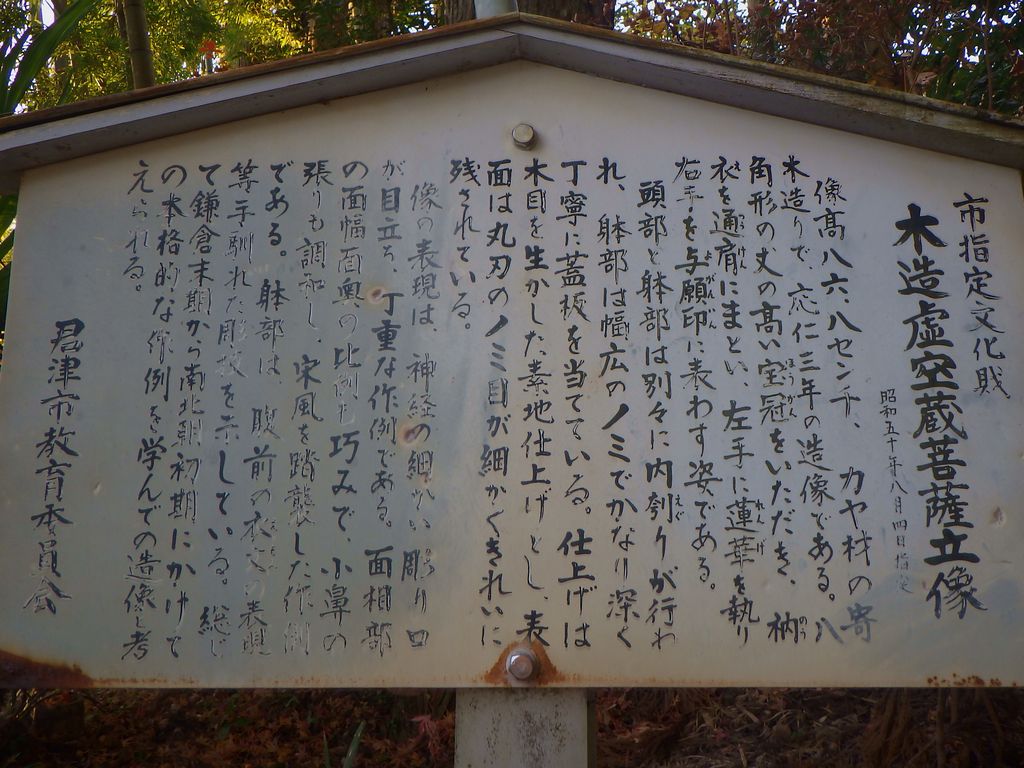 市指定文化財
木造虚空蔵菩薩立像
昭和五十年八月四日指定
像高八六・八センチ、カヤ材の寄
木造りで、応仁三年の造像である。八
角形の丈の高い宝冠をいただき、衲
衣を通肩にまとい、左手に蓮華を執り
右手を与願印に表わす姿である。
頭部と躰部は別々に内刳りが行わ
れ、躰部は幅広のノミでかなり深く
丁寧に蓋板を当てている。仕上げは
木目を生かした素地仕上げとし、表
面は丸刃のノミ目が細かくきれいに
残されている。
像の表現は、神経の細かい彫り口
が目立ち、丁重な作例である。面相部
の面幅面奥の比例も巧みで、小鼻の
張りも調和し、宋風を踏襲した作例
である。躰部は、腹前の衣文の表現
等手馴れた彫技を示している。総じ
て鎌倉末期から南北朝初期にかけて
の本格的な作例を学んでの造像と考
えられる。
君津市教育委員会